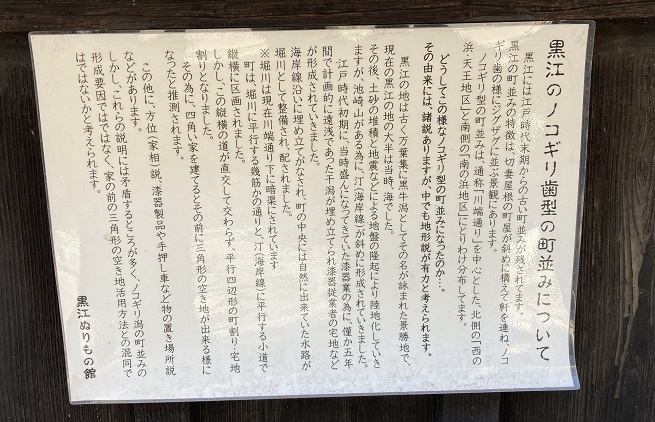 黒江のノコギリ歯型の町並みについて
黒江には江戸時代末期からの古い町並みが残されてます。
黒江の町並みの特徴は、切妻屋根の町屋が斜めに構えて軒を連ね、ノコ
ギリ歯の様にジグザグに並ぶ景観にあります。
ノコギリ型の町並みは、通称「川端通り」を中心とした、北側の「西の
浜、天王地区」と南側の「南の浜地区」にとりわけ分布してます。
どうしてこの様なノコギリ型の町並みになったのか…。
その由来には、諸説ありますが、中でも地形説が有力と考えられます。
黒江の地は古く万葉集に黒牛潟としてその名が詠まれた景勝地で、
現在の黒江の地の大半は当時、海でした。
その後、土砂の堆積と地震などによる地盤の隆起により陸地化していき
ますが、池崎山がある為に、汀(海岸線)が斜めに形成されていきました。
江戸時代初期に、当時盛んになってきていた漆器業の為に、僅か五年
間で計画的に遠浅であった干潟が埋め立てられ漆器従業者の宅地など
が形成されていきました。
海岸線沿いに埋め立てがなされ、町の中央には自然に出来ていた水路が
堀川として整備され、配されました。
※堀川は現在川端通り下に暗渠にされています
町は、堀川に平行する幾筋かの通りと、汀(海岸線)に平行する小道で
縦横に区画されました。
しかし、この縦横の道が直交して交わらず、平行四辺形の町割り・宅地
割りとなりました。
その為に、四角い家を建てるとその前に三角形の空き地が出来る様に
なったと推測されます。
この他に、方位(家相)説、漆器製品や手押し車など物の置き場所説
などがあります。
しかし、これらの説明には矛盾するところが多く、ノコギリ潟の町並みの
形成要因ではではなく、家の前の三角形の空き地活用方法との混同で
はではないかと考えられます。
黒江ぬりもの館